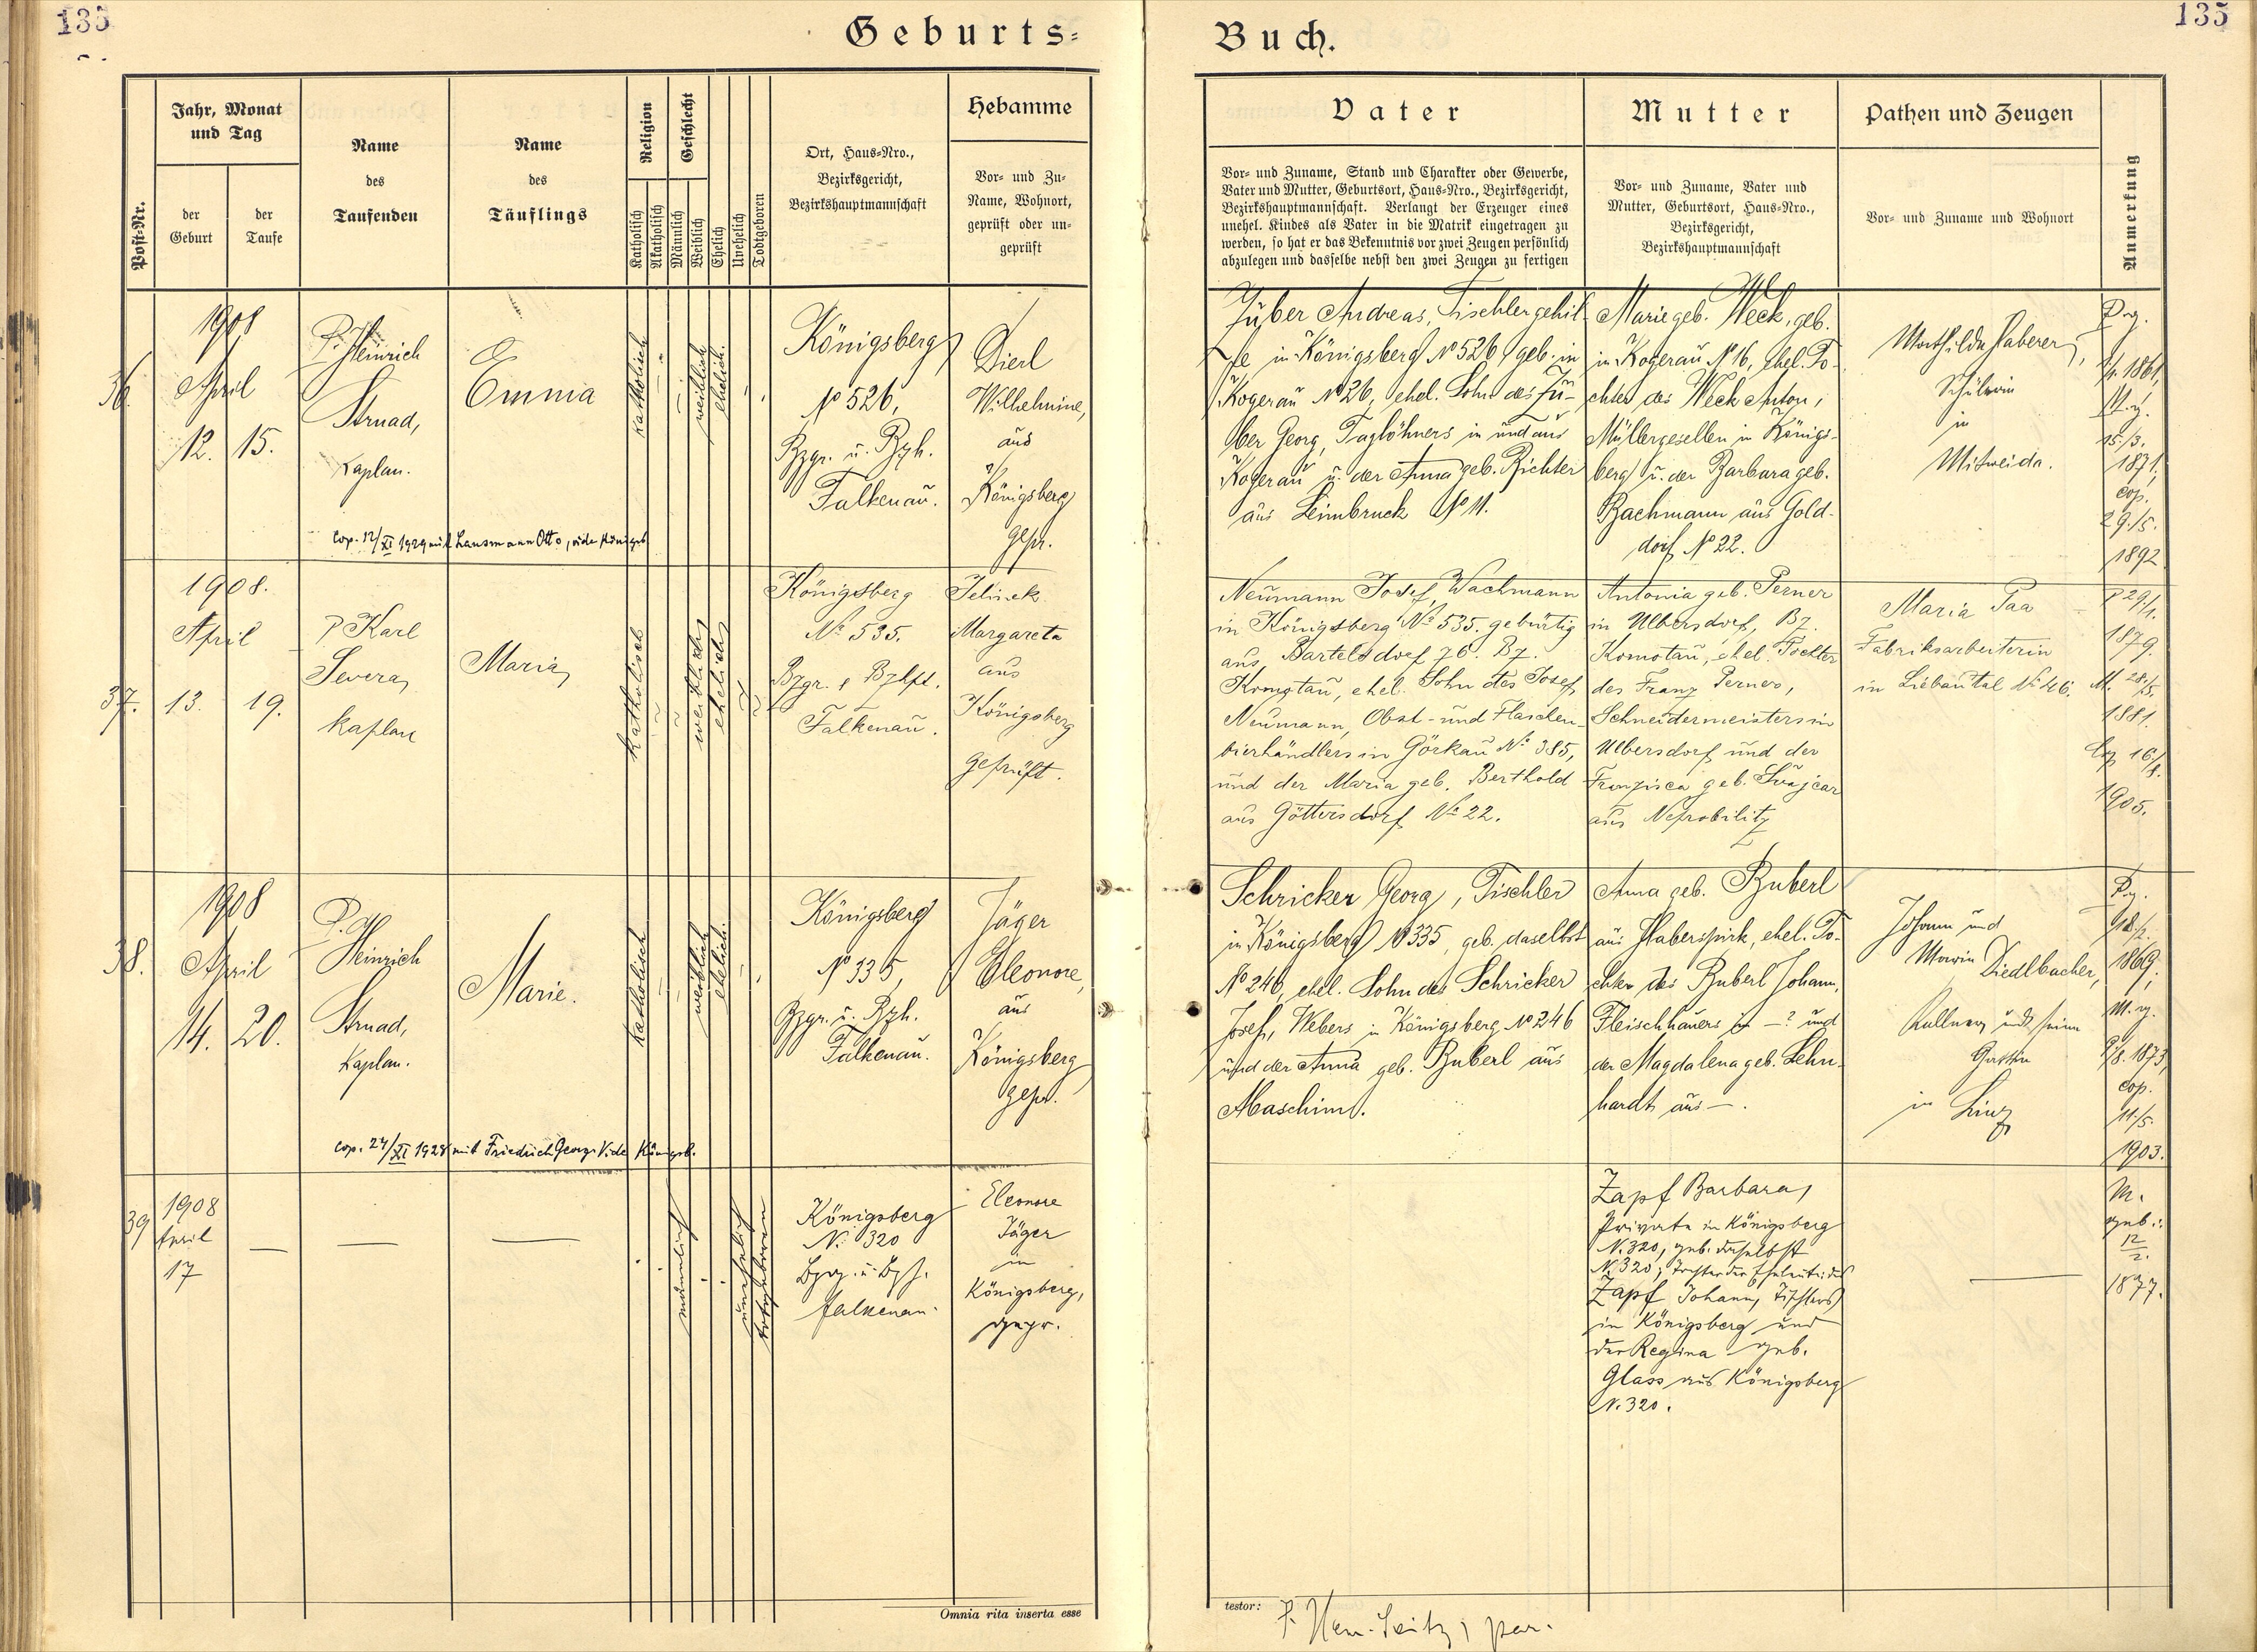 135
Geburts-
Buch.
135
Post-Nr.
Jahr, Monat
und Tag
der
Geburt
der
Taufe
Name
des
Taufenden
Name
des
Täuflings
Religion
Katholisch
Akatholisch
Geschlecht
Männlich
Weiblich
Ehelich
Unehelich
Todtgeboren
Ort, Haus-Nro.,
Bezirksgericht,
Bezirkshauptmannschaft
Hebamme
Vor- und Zu-
Name, Wohnort,
geprüft oder un-
geprüft
Vater
Vor- und Zuname, Stand und Charakter oder Gewerbe,
Vater und Mutter, Geburtsort, Haus-Nro., Bezirksgericht,
Bezirkshauptmannschaft. Verlangt der Erzeuger eines
unehel. Kindes als Vater in die Matrik eingetragen zu
werden, so hat er das Bekenntnis vor zwei Zeugen persönlich
abzulegen und dasselbe nebst den zwei Zeugen zu fertigen
Mutter
Vor- und Zuname, Vater und
Mutter, Geburtsort, Haus-Nro.,
Bezirksgericht,
Bezirkshauptmannschaft
Pathen und Zeugen
Vor- und Zuname und Wohnort
Anmerkung
36.
1908
April
12. 15.
P. Heinrich
Strnad,
Kaplan.
Emma
katholisch
weiblich
ehelich.
Königsberg
No 526,
Bzgr. u. Bzh.
Falkenau.
Dierl
Wilhelmine,
aus
Königsberg
gepr.
cop. 12/XI 1929 mit Lausmann Otto, vide Königsb
Züber Andreas, Tischlergehil-
fe in Königsberg No 526, geb. in
Kogerau No 26, ehel. Sohn des Zü-
ber Georg, Taglöhners in und aus
Kogerau u. der Anna geb. Richter
aus Leimbruck No 11.
Marie geb. Weck, geb.
in Kogerau No 16, ehel. To-
chter des Weck Anton,
Müllergesellen in Königs-
berg u. der Barbara geb.
Bachmann aus Gold-
dorf No 22.
Mathilde Haberer,
Schülerin
in
Mitweida.
1861,
15./3.
1871,
cop.
29./5.
1892
37.
1908.
April
13. 19.
P Karl
Severa,
Kaplan
Maria
Katholisch
weiblich
ehelich
Königsberg
No 535.
Bzgr. & Bzhpt.
Falkenau.
Jelinek
Margareta
aus
Königsberg
geprüft.
Neumann Josef, Wachmann
in Königsberg No 535. gebürtig
aus Bartelsdorf 76. Bz.
Komotau, ehel. Sohn des Josef
Neumann, Obst- und Flaschen-
bierhändlers in Görkau No 385,
und der Maria geb. Berthold
aus Göttersdorf No 22.
Antonia geb. Perner
in Ulbersdorf, Bz.
Komotau, ehel. Tochter
des Franz Perners,
Schneidermeisters in
Ulbersdorf und der
Franzisca geb. Švajcar
aus Neprobilitz
Maria Paa
Fabriksarbeiterin
in Liebautal No 46.
P 29/1.
1879.
M. 28./5.
1881.
Cop 16./8.
1905.
38.
1908
April
14. 20.
P.
Heinrich
Strnad,
Kaplan.
Marie.
katholisch
weiblich
ehelich.
Königsberg
No 335,
Bzgr. u. Bzh.
Falkenau.
Jäger
Eleonore,
aus
Königsberg
gepr.
cop. 24/XI 1928 mit Friedrich Georg. Vide Königsb.
Schricker Georg, Tischler
in Königsberg No 335, geb. daselbst
No 246, ehel. Sohn des Schricker
Josef, Webers in Königsberg No 246
und der Anna geb. Buberl aus
Maschim.
Anna geb. Buberl
aus Haberspirk, ehel. To-
chter des Buberl Johann,
Fleischhauers in —? und
der Magdalena geb. Lehn-
hardt aus —.
Johann und
Maria Diedlbacher,
Kellner und seine
Gattin
in Linz
1869,
1873,
cop.
11./5.
1903.
39
1908
April
17
— — —
männlich
unehelich
totgeboren
Königsberg
N. 320
Bzg. u. Bzh.
Falkenau.
Eleonore
Jäger
in
Königsberg,
gepr.
Zapf Barbara,
Private in Königsberg
N. 320, geb. daselbst
N. 320, Tochter der Eheleute: des
Zapf Johann, Tischlers
in Königsberg und
der Regina geb.
Glass aus Königsberg
N. 320.
—
M.
geb.:
12/2.
1877.
Omnia rita inserta esse
testor: